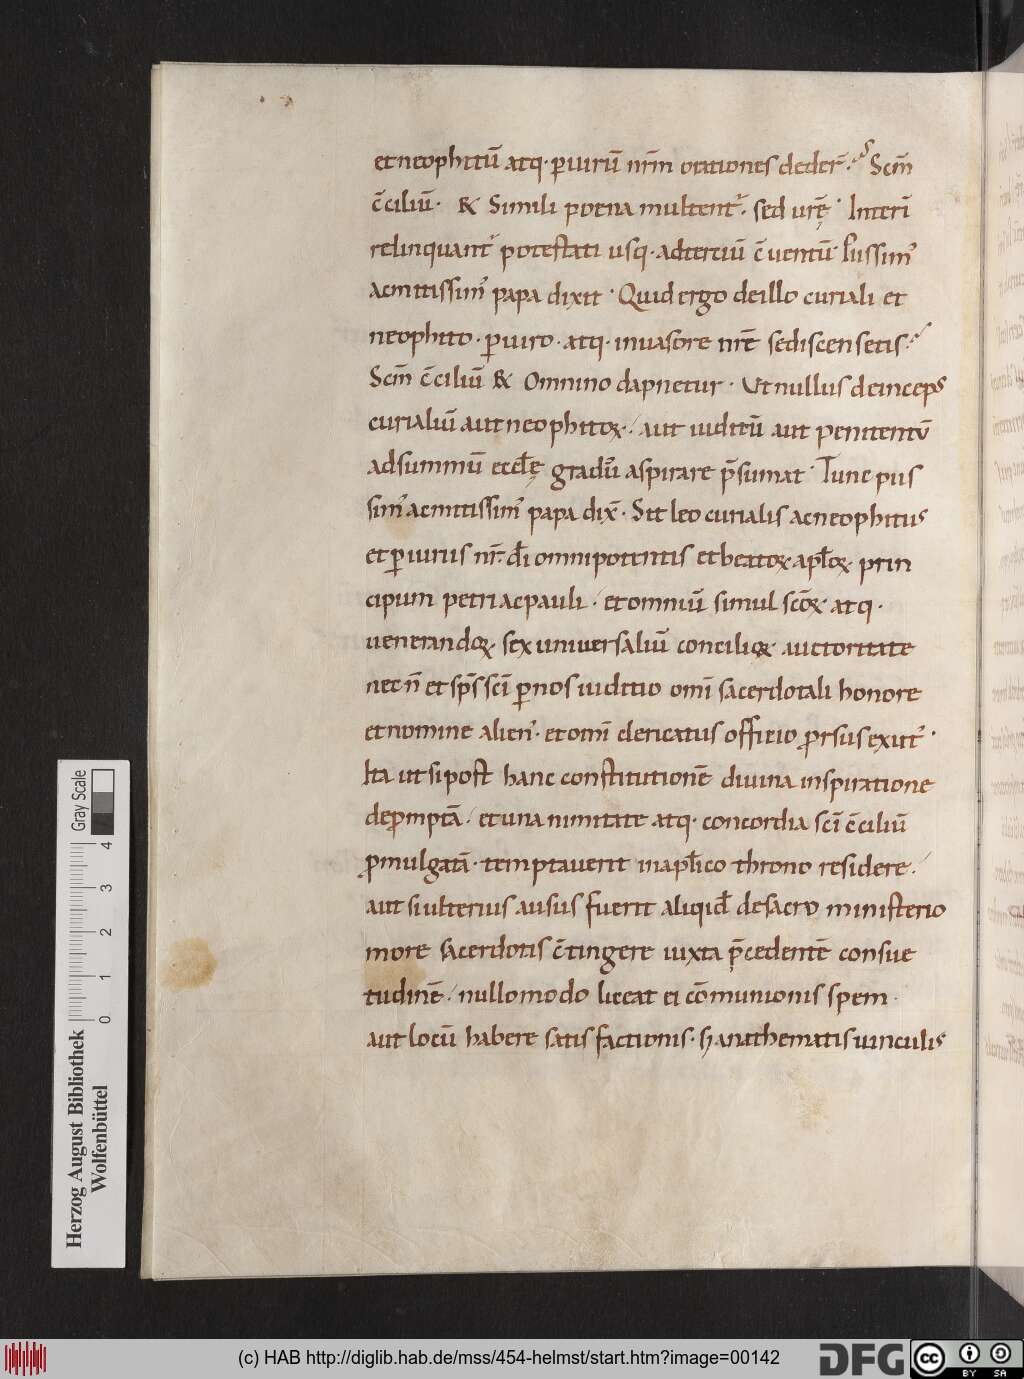 et neophitū atq· ꝑiurū nr̄m orationes deder̄· Scm̄
c̄ciliū· & Simili poena multent᷑· sed ur̄ę· Interī
relinquant᷑ potestati usq· ad terciū c̄uentū· Piissim᷒
ac mitissim᷒ papa dixit· Quid ergo de illo curiali et
neophito· ꝑiuro· atq· inuasore nrē sedis censetis·
Scm̄ c̄ciliū & Omnino dapnetur· Ut nullus deinceps
curialiū aut neophitoꝝ· aut iuditū aut penitentū
ad summū eccłę gradū aspirare p̄sumat· Tunc piis
sim᷒ ac mitissim᷒ papa dix̄· Sit leo curialis ac neophitus
et ꝑiurus nr̄· dī omnipotentis et beatoꝝ apłoꝝ prin
cipum petri ac pauli· et omniū simul scōꝝ atq·
uenerandoꝝ sex uniuersaliū concilioꝝ auctoritate
nec n̄ et sp̄s scī ꝑ nos iuditio omī sacerdotali honore
et nomine alien᷒· et omī clericatus officio ꝓrsus exuit᷑·
Ita ut si post hanc constitutionē diuina inspiratione
deꝓmptā· et unanimitate atq· concordia scī c̄ciliū
ꝓmulgatā· temptauerit in apłico throno residere·
aut si ulterius ausus fuerit aliqid de sacro ministerio
more sacerdotis c̄tingere iuxta p̄cedentē consue
tudinē· nullo modo liceat ei cōmunionis spem·
aut locū habere satisfactionis· ꜱ; anathematis uinculis
Gray Scale
0 1 2 3 4
Herzog August Bibliothek
Wolfenbüttel
(c) HAB http://diglib.hab.de/mss/454-helmst/start.htm?image=00142
DFG
cc BY SA